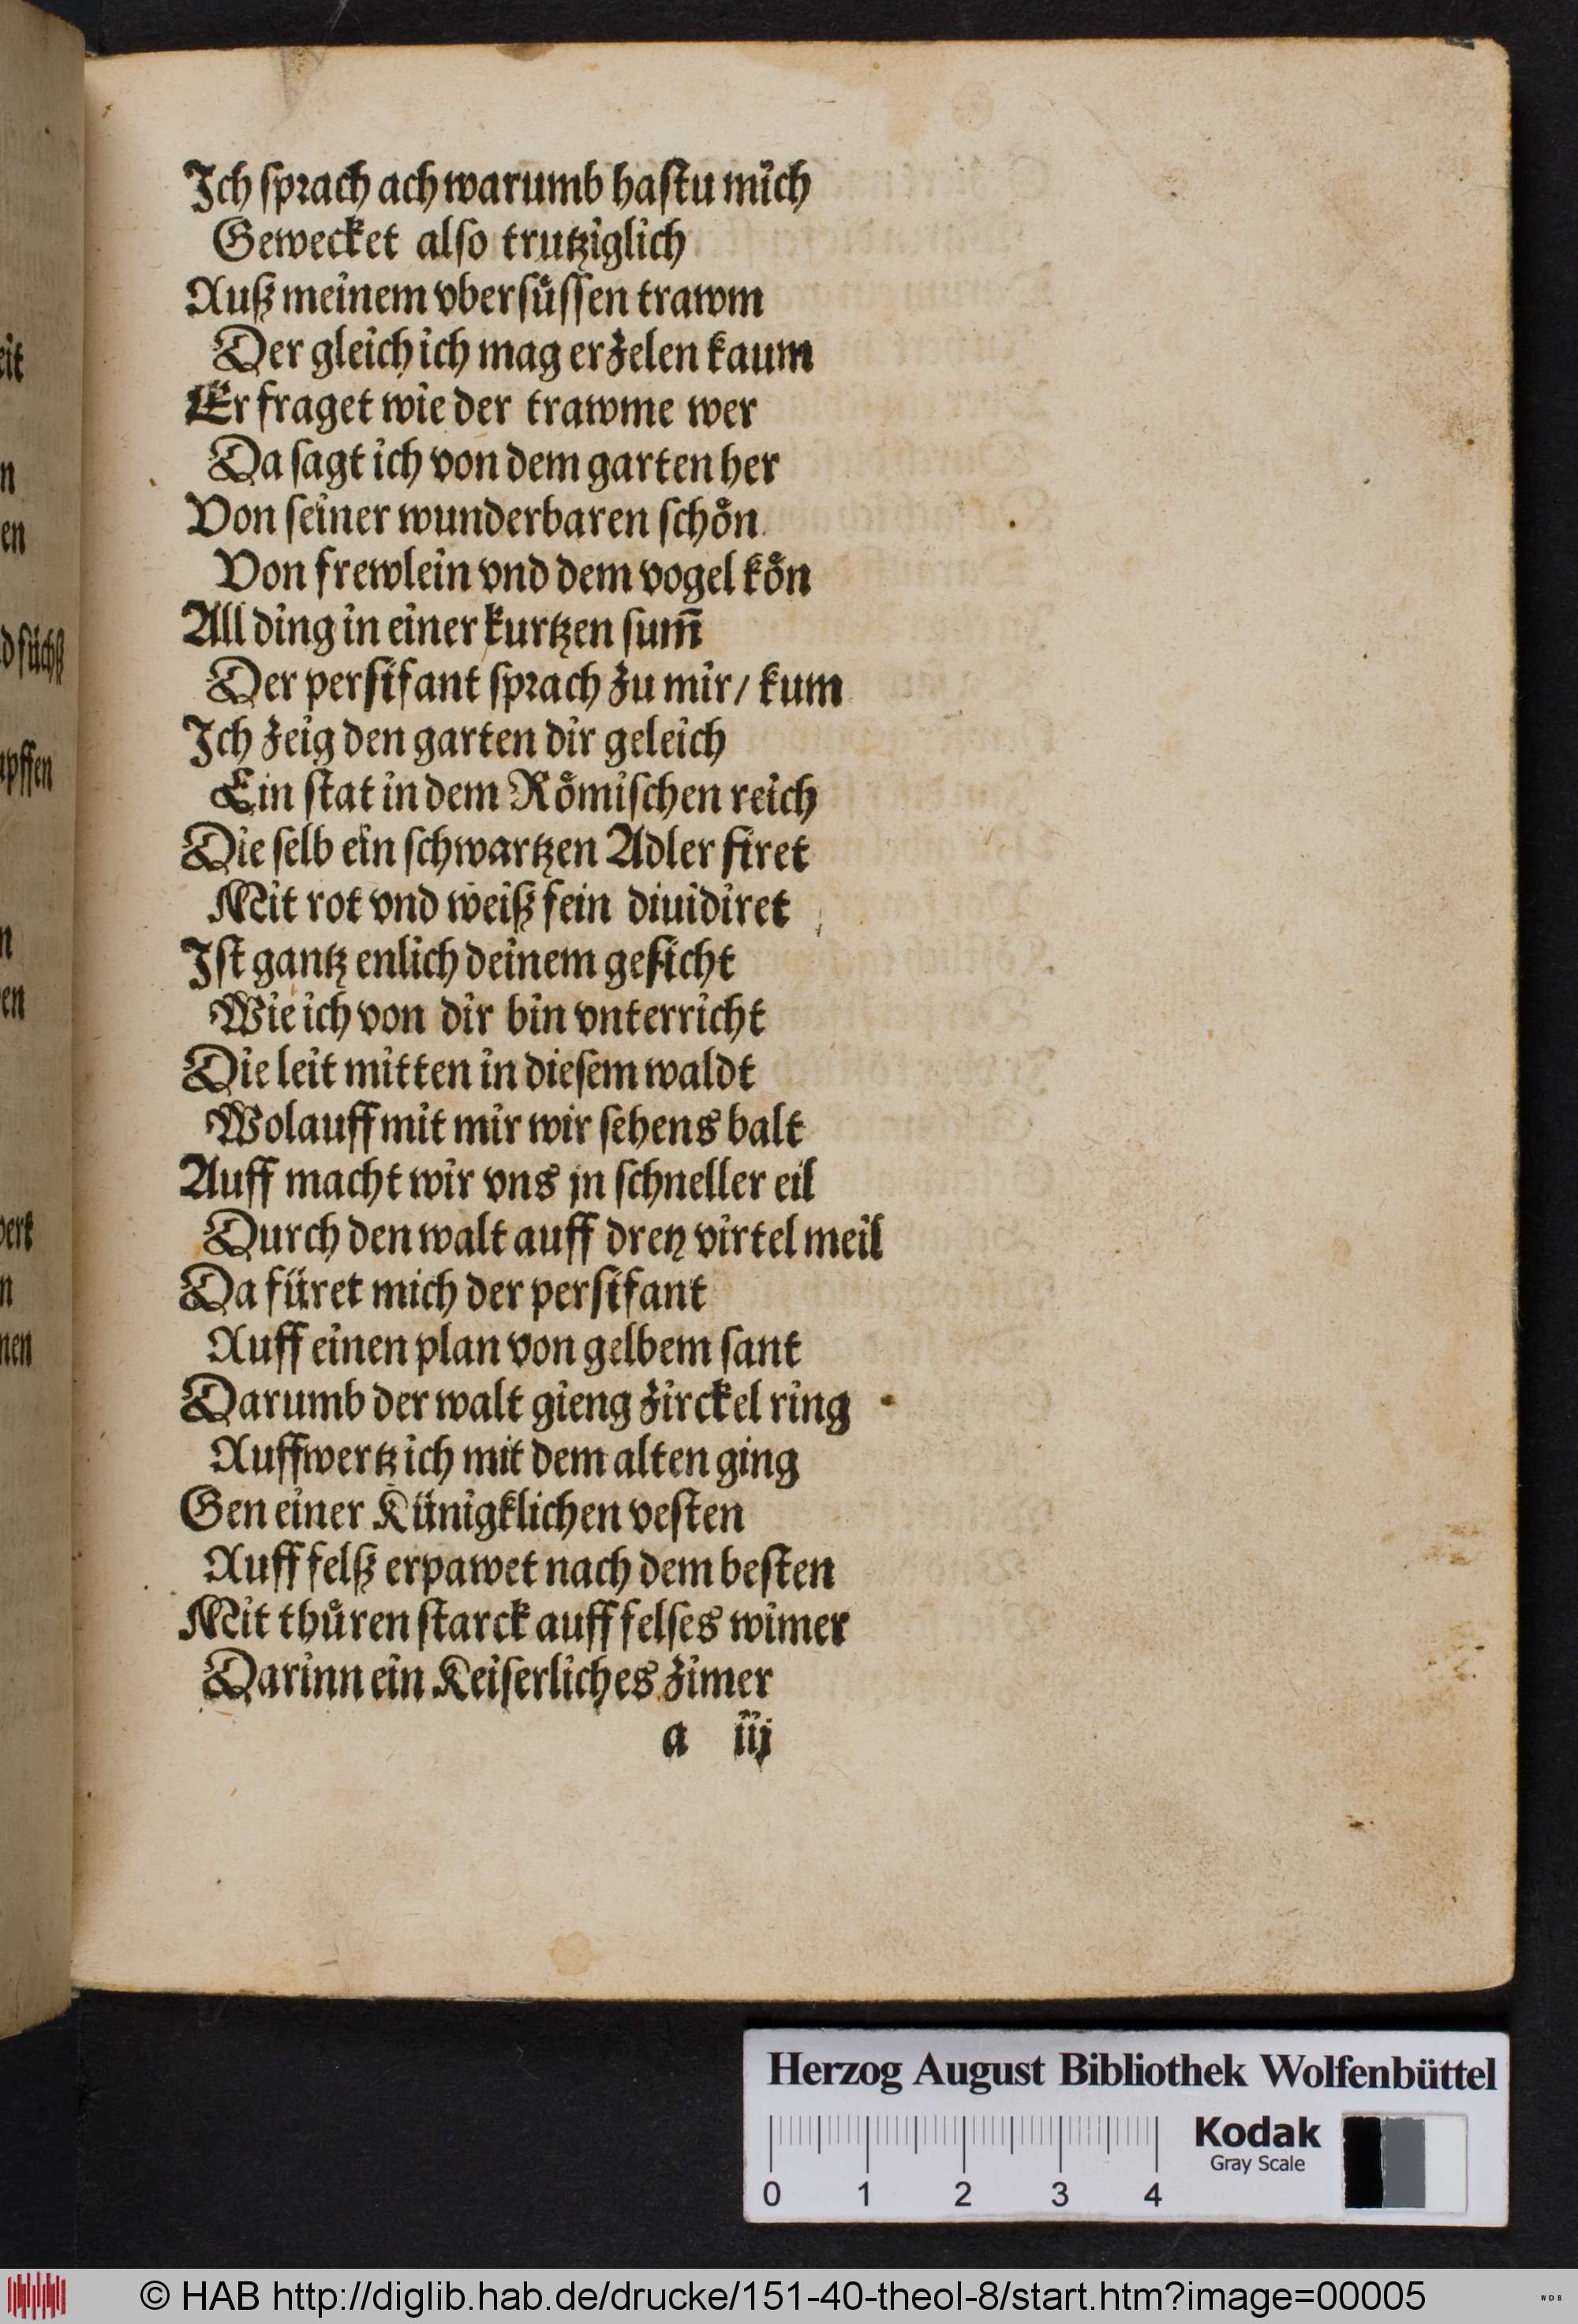 Ich sprach ach warumb hastu mich
Gewecket also trutziglich
Auß meinem vbersüssen trawm
Der gleich ich mag erzelen kaum
Er fraget wie der trawme wer
Da sagt ich von dem garten her
Von seiner wunderbaren schön
Von frewlein vnd dem vogel kön
All ding in einer kurtzen sum̄
Der persifant sprach zu mir/ kum
Ich zeig den garten dir geleich
Ein stat in dem Römischen reich
Die selb ein schwartzen Adler firet
Mit rot vnd weiß fein diuidiret
Ist gantz enlich deinem gesicht
Wie ich von dir bin vnterricht
Die leit mitten in diesem waldt
Wolauff mit mir wir sehens balt
Auff macht wir vns jn schneller eil
Durch den walt auff drey virtel meil
Da füret mich der persifant
Auff einen plan von gelbem sant
Darumb der walt gieng zirckel ring
Auffwertz ich mit dem alten ging
Gen einer Künigklichen vesten
Auff felß erpawet nach dem besten
Mit thüren starck auff felses wimer
Darinn ein Keiserliches zimer
a iij
Herzog August Bibliothek Wolfenbüttel
Kodak
Gray Scale
0 1 2 3 4
© HAB http://diglib.hab.de/drucke/151-40-theol-8/start.htm?image=00005